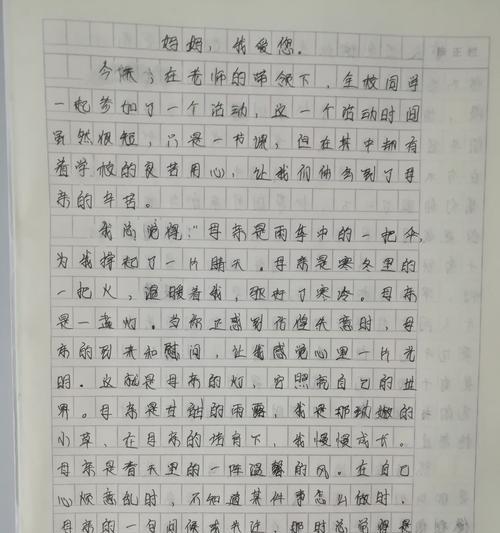 妈妈,我爱您。
今天,在老师的带领下,全校同学
一起参加了一个活动,这一个活动时间
虽然很短,只是一节课,但在其中却有
着学校的良苦用心,让我们体会到了母
亲的辛苦。
我总觉得:"母亲是雨季中的一把伞,
为我撑起了一片晴天。母亲是寒冬里的
一把火,温暖着我,驱好了寒冷。母亲
是一盏灯。当你正感到彷徨失意时,母
亲的到来和慰问,让我感觉心里一片光
明。这就是母亲的灯,它照亮自己的世
界。母亲是甘甜的雨露,我是那嫩嫩的
小草,在母亲的培育下,我慢慢成长。
母亲是春天里的一阵温馨的风。在自己
心烦意乱时,不知道某件事怎么做时,
母亲的一句问候和关注,那时总觉得是